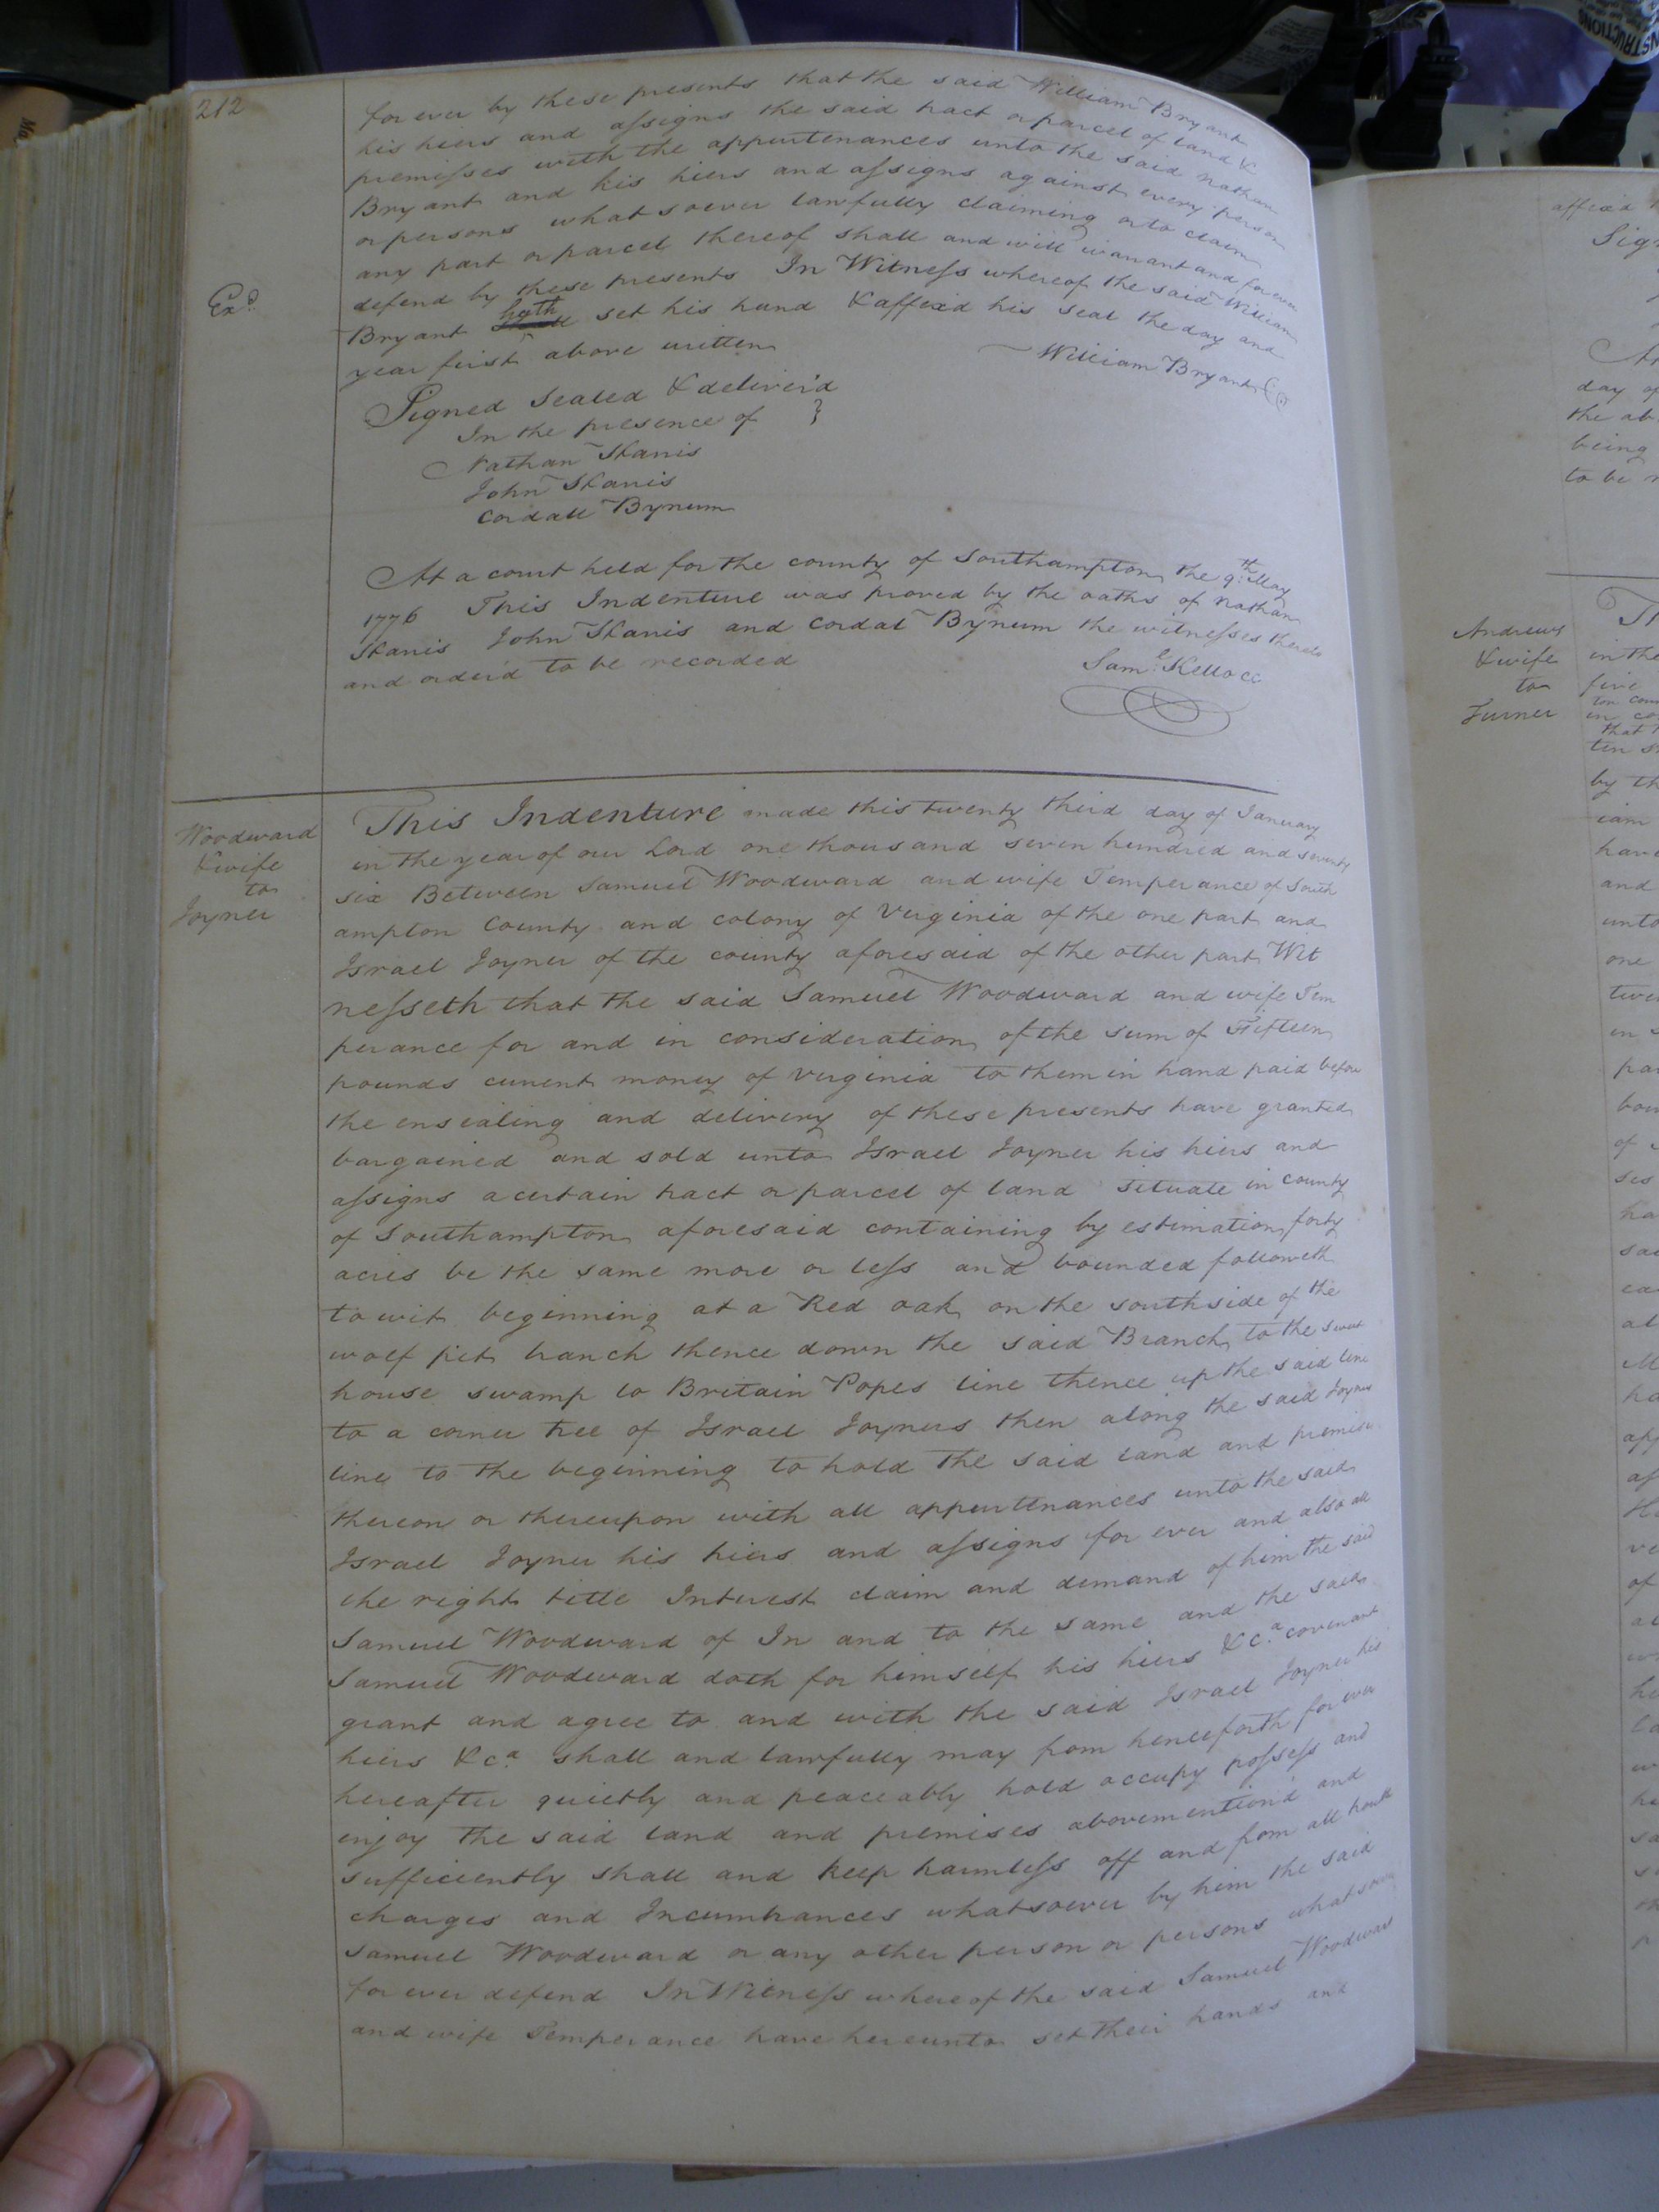 212
for ever by these presents that the said William Bryant
his hiers and assigns the said tract or parcel of land &
premisses with the appurtenances unto the said Nathan
Bryant and his hiers and assigns against every person
or persons whatsoever lawfully claiming or to claim
any part or parcel thereof shall and will warrant and for ever
defend by these presents In Witness whereof the said William
Exd.
Bryant hath set his hand & affixed his seal the day and
year first above written
William Bryant
Signed Sealed & deliver'd
In the presence of
Nathan
John
Cordall Bynum
At a court held for the county of Southampton the 9th. May
1776 This Indenture was proved by the oaths of Nathan
John and Cordal Bynum the witnesses thereto
and order'd to be recorded
Saml. Kello CC
Woodward
& wife
to
Joyner
This Indenture made this twenty third day of January
in the year of our Lord one thousand seven hundred and seventy
six Between Samuel Woodward and wife Temperance of South
ampton County and colony of Virginia of the one part and
Israel Joyner of the county aforesaid of the other part Wit
nesseth that the said Samuel Woodward and wife Tem
perance for and in consideration of the sum of Fifteen
pounds current money of Virginia to them in hand paid before
the ensealing and delivery of these presents have granted
bargained and sold unto Israel Joyner his hiers and
assigns a certain tract or parcel of land situate in county
of Southampton aforesaid containing by estimation forty
acres be the same more or less and bounded followeth
to wit beginning at a Red oak on the southside of the
wolf pit branch thence down the said Branch to the
house swamp to Britain Popes line thence up the said line
to a corner tree of Israel Joyners then along the said Joyners
line to the beginning to hold the said land and premises
thereon or thereupon with all appurtenances unto the said
Israel Joyner his hiers and assigns for ever and also all
the right title Interest claim and demand of him the said
Samuel Woodward of In and to the same and the said
Samuel Woodward doth for himself his hiers &ca. covenant
grant and agree to and with the said Israel Joyner his
hiers &ca. shall and lawfully may from henceforth for ever
hereafter quietly and peaceably hold occupy possess and
enjoy the said land and premises abovemention'd and
sufficiently shall and keep harmless off and from all
charges and Incumbrances whatsoever by him the said
Samuel Woodward or any other person or persons whatsoever
for ever defend In Witness where of the said Samuel Woodward
and wife Temperance have hereunto set their hands and
affixed
day of
being
Andrews
& wife
to
Turner
in the
five
that
by th
and
unto
one
of